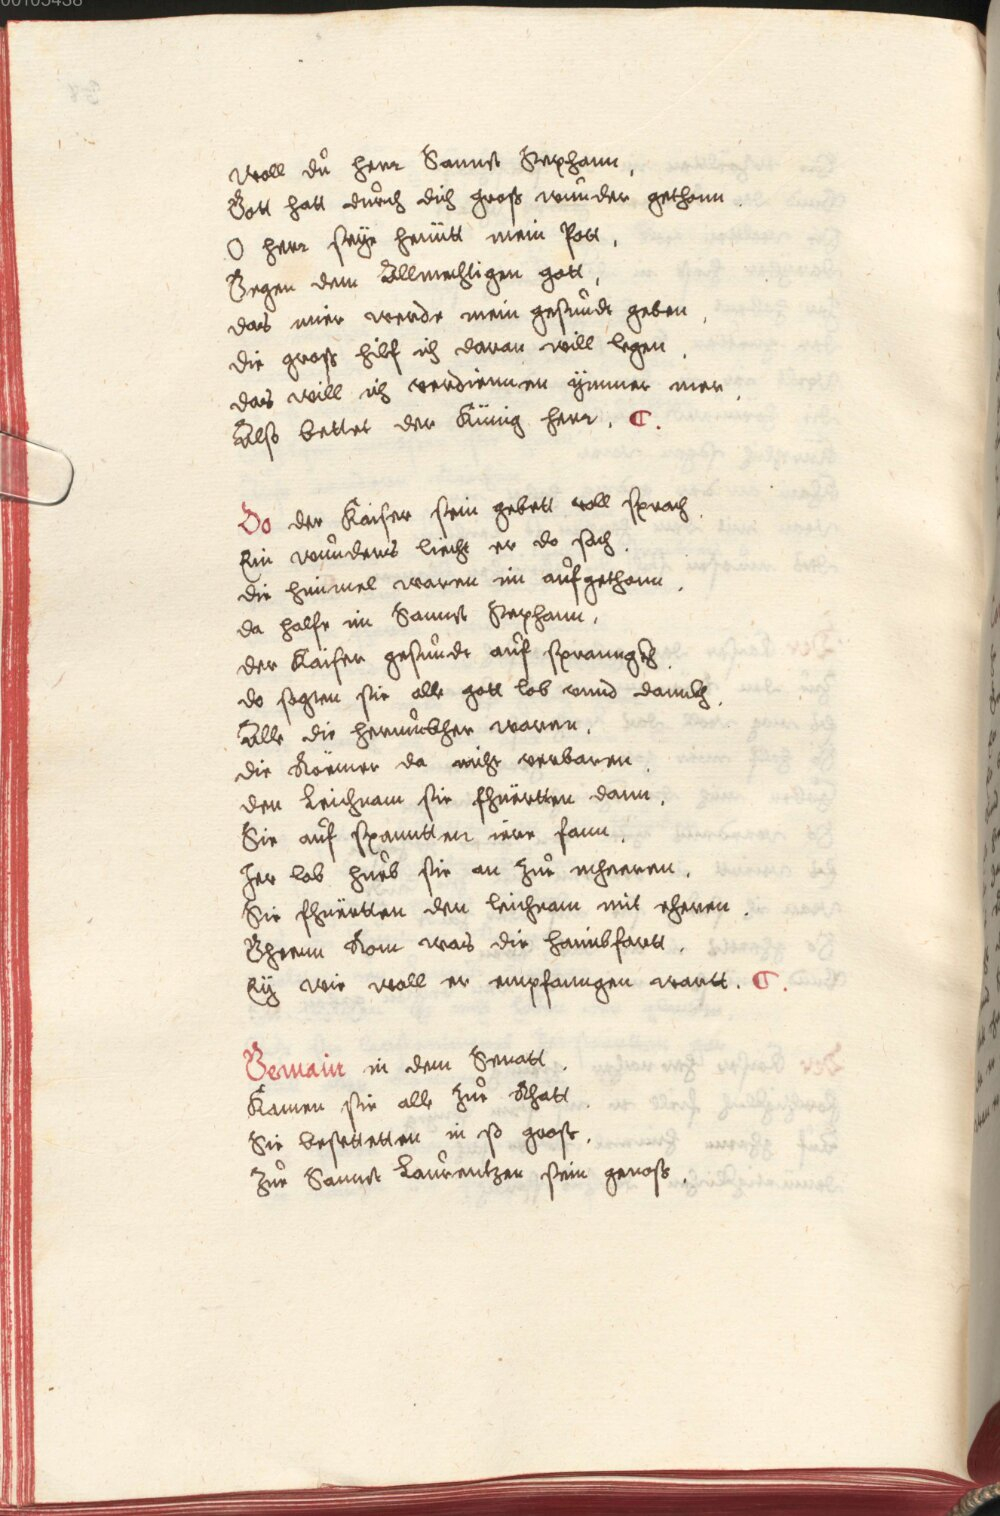 00103438
Woll dů herr Sannct Stephann,
Gott hatt důrch dich groß wůnder gethonn.
O herr seÿe heüütt mein Pott,
Gegen dem Allmechtigen gott,
das mier werde mein gesůndt geben,
die groß hilf ich daran will legen,
das will ich verdiennen ÿmmer mer,
Alß bettet der Künig herr. C.
Do der Kaiser sein gebett voll sprach.
Ein wůnders liecht er do sach.
die himmel waren im aůfgethonn,
da halfe im Sannct Stephann,
der Kaiser gesůndt aůf spranng
do sagten sie alle gott lob vnnd dannckh,
Alle die
waren,
die Roemer da nicht verbaren,
den Leichnam sie fhuertten dann,
Sie aůf spanntten ierr fann,
Jer lob hueb sie an zůe mheeren,
Sie fhuertten den leichnam mit eheren.
Ghenn Rom was die haimbfartt.
Eÿ wie woll er empfanngen wartt. C.
Gemain in dem Senatt.
Kamen sie alle zůe Rhatt.
Sie bestetteten in so gross,
zůe Sannct Laůrentzen sein genoß.